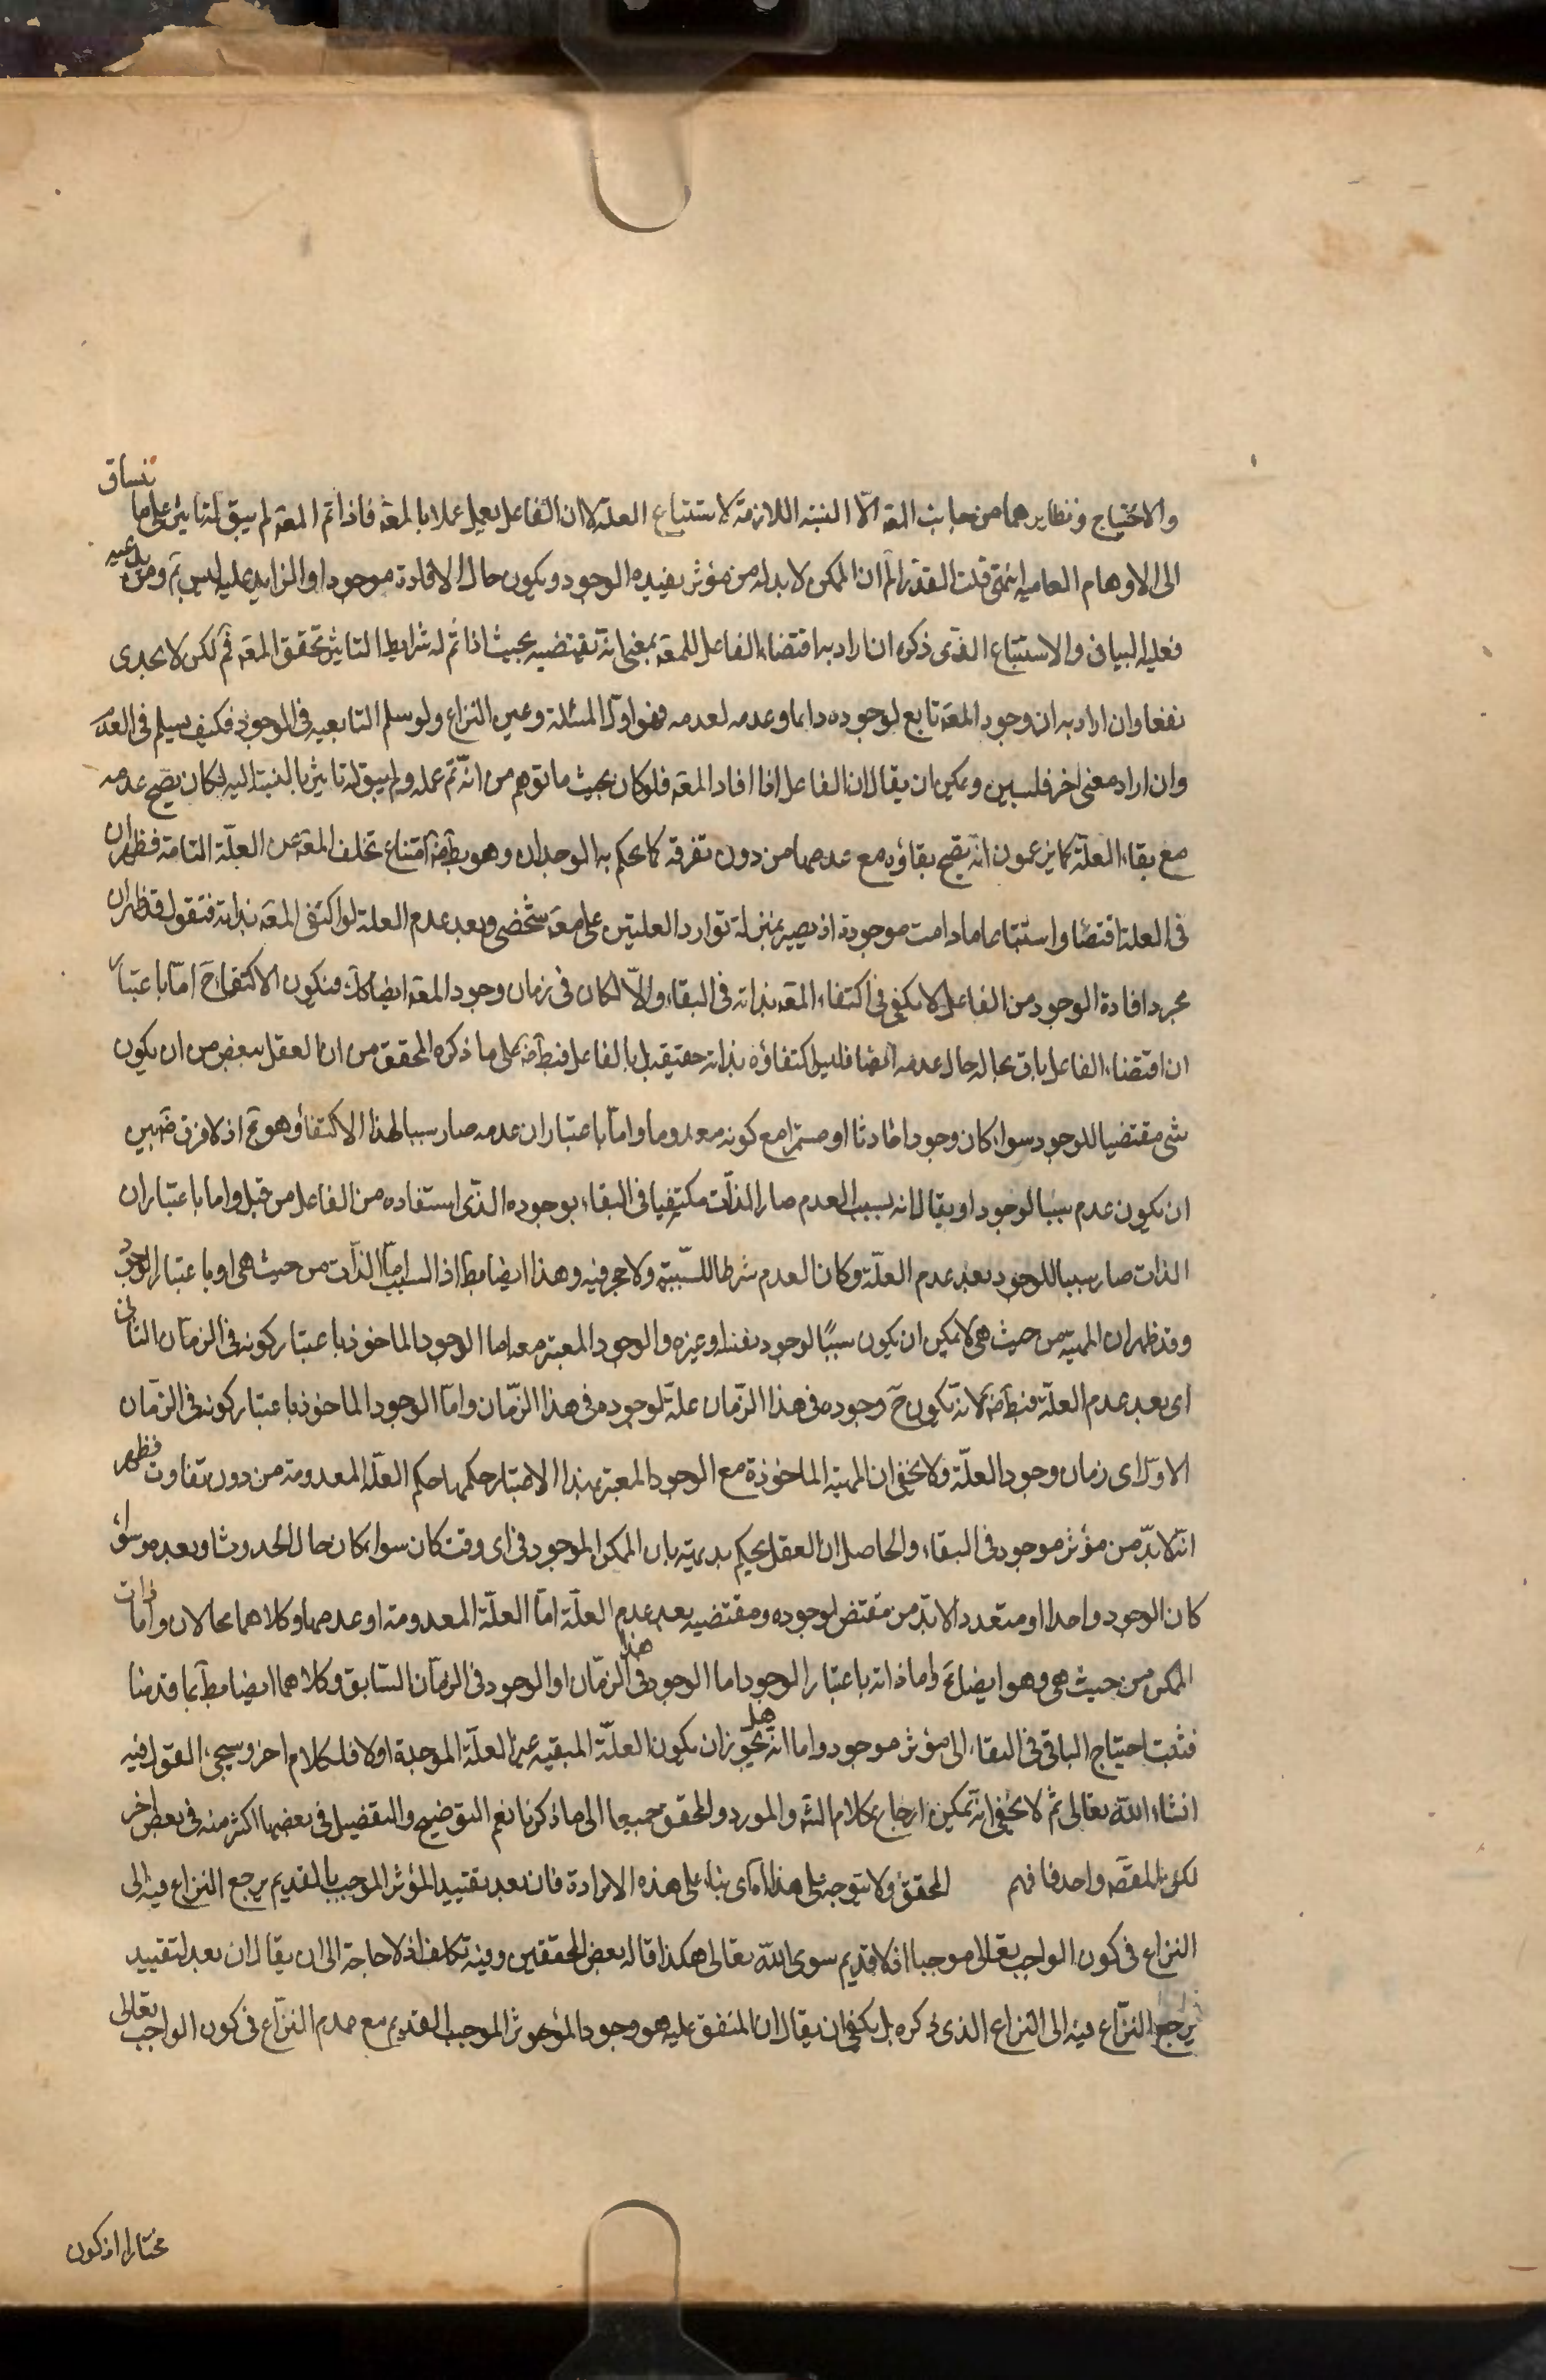 والاحتياج ونظايرهما من جانب المعه الّا النسبة اللازمة لاستتباع العلة لا ان الفاعل يعمل عملا بالمعه فاذا تم المعه لم يبق له تاثير على ما ينساق
الى الاوهام العاميه انتهى قلت القدر الم ان الممكن لابد له من مؤثر يفيده الوجود ويكون حال الافادة موجودا والزايد عليه ليس بم ومن يدعيه
فعليه البيان والاستتباع الذى ذكره ان اراد به اقتضاء الفاعل للمعه بمعنى انه تقتضيه بحيث اذا تم له شرايط التاثير تحقق المعه فم لكن لا يجدى
نفعا وان اراد به ان وجود المعه تابع لوجوده دايما وعدمه لعدمه فهو اول المسئلة وعين النزاع ولو سلم التابعيه فى الوجود فكيف يسلم فى العدم
وان اراد معنى اخر فليبين ويمكن ان يقال ان الفاعل اذا افاد المعه فلو كان بحيث ما توهم من انه تم عمله ولم يبق له تاثير بالنسبة اليه لكان يصح عدمه
مع بقاء العلة كما يزعمون انه يصح بقاؤه مع عدمها من دون تفرقه كما يحكم به الوجدان وهو بط ضة امتناع تخلف المعه عن العلّة التامة فظهر ان
فى العلة اقتضاء واستتباعا ما دامت موجودة اذ يصير بمنزلة توارد العلتين على معه شخصى وبعد عدم العلة لو اكتفى المعه بذاته فنقول قد ظهر ان
مجرد افادة الوجود من الفاعل لا يكفى فى اكتفاء المعه بذاته فى البقاء والّا لكان فى زمان وجود المعه ايضا كك فيكون الاكتفاء ح امّا باعتبار
ان اقتضاء الفاعل باق بحاله حال عدمه ايضا فليس اكتفاؤه بذاته حقيقه بل بالفاعل فبط ضة على ما ذكره المحقق من ان العقل يبغض من ان يكون
شى مقتضيا للوجود سواء كان وجودا حادثا او مستمرا مع كونه معدوما وامّا باعتبار ان عدمه صار سببا لهذا الاكتفاء وهو مح اذ لا فرق ضة بين
ان يكون عدم سببا لوجود او يقال انه بسبب العدم صار الذات مكتفيا فى البقاء بوجوده الذى استفاده من الفاعل من قبل واما باعتبار ان
الذات صار سببا للوجود بعد عدم العلّة وكان العدم شرطا للسببية ولا حجر فيه وهذا ايضا بط اذ السبب امّا الذات من حيث هى او باعتبار الوجود
وقد ظهر ان المهية من حيث هى لا يمكن ان يكون سببًا لوجود نفسه او غيره والوجود المعتبر معه اما الوجود الماخوذ باعتبار كونه فى الزمان الثانى
اى بعد عدم العلّة فبط ضة لانه يكون ح وجوده فى هذا الزمان علة لوجوده فى هذا الزمان وامّا الوجود الماخوذ باعتبار كونه فى الزمان
الاول اى زمان وجود العلّة ولا يخفى ان المهية الماخوذة مع الوجود المعتبر بهذا الاعتبار حكمها حكم العلّة المعدومة من دون تفاوت فظهر
انّه لابدّ من مؤثر موجود فى البقاء والحاصل ان العقل يحكم بديهية بان الممكن الموجود فى اى وقت كان سواء كان حال الحدوث او بعده وسواء
كان الوجود واحدا او متعددا لابدّ من مقتض لوجوده ومقتضيه بعد عدم العلّة امّا العلّة المعدومة او عدمها وكلاهما محالان وامّا ذات
الممكن من حيث هى وهو ايضا مح واما ذاته باعتبار الوجود اما الوجود فى هذا الزمان او الوجود فى الزمان السابق وكلاهما ايضا بط بما قدمنا
فثبت احتياج الباقى فى البقاء الى مؤثر موجود واما انه هل يجوز ان يكون العلّة المبقيه غير العلّة الموجدة اولا فلكلام اخر وسيجئ القول فيه
انشاء الله تعالى ثم لا يخفى انه يمكن ارجاع كلام الشه والمورد والمحقق جميعا الى ما ذكرنا نعم التوضيح والتفصيل فى بعضها اكثر منه فى بعض اخر
لكن المقصه واحد فافهم المحقق ولا يتوجه على هذا اه اى بناء على هذه الارادة فان بعد تقييد المؤثر الموجب بالقديم يرجع النزاع فيه الى
النزاع فى كون الواجب تعالى موجبا اذ لا قديم سوى الله تعالى هكذا قاله بعض المحققين وفيه تكلف اذ لا حاجة الى ان يقال ان بعد التقييد
يرجع النزاع فيه الى النزاع الذى ذكره بل يكفى ان يقال ان المتفق عليه هو وجود المؤثر الموجب القديم مع عدم النزاع فى كون الواجب تعالى
مختارا اذ كون